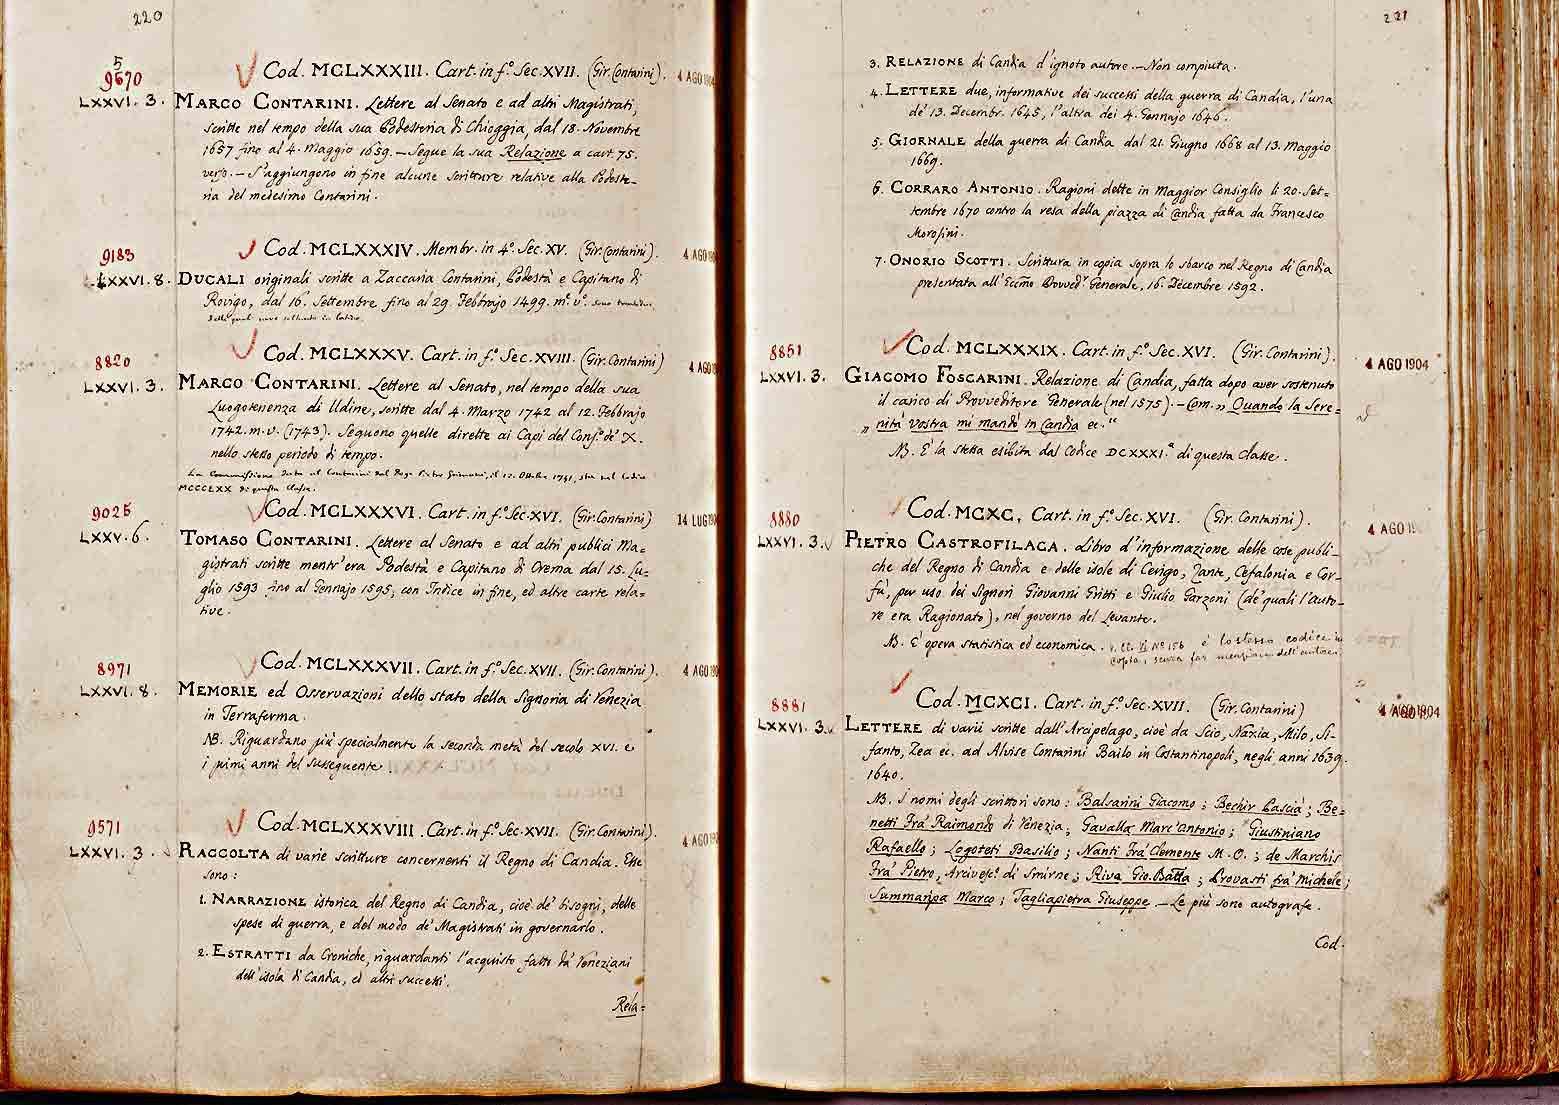 220
5
9670
Cod. MCLXXXIII. Cart. in f.º Sec. XVII. (Gir. Contarini).
4 AGO 1904
LXXVI. 3.
MARCO CONTARINI. Lettere al Senato e ad altri Magistrati,
scritte nel tempo della sua Podesteria di Chioggia, dal 18. Novembre
1657 fino al 4. Maggio 1659. – Segue la sua Relazione a cart. 75.
verso. – S'aggiungono in fine alcune scritture relative alla Podeste-
ria del medesimo Contarini.
9183
Cod. MCLXXXIV. Membr. in 4º. Sec. XV. (Gir. Contarini).
4 AGO
LXXVI. 8.
DUCALI originali scritte a Zaccaria Contarini, Podestà e Capitano di
Rovigo, dal 16. Settembre fino al 29. Febbrajo 1499. m.º v.º
8820
Cod. MCLXXXV. Cart. in f.º Sec. XVIII. (Gir. Contarini)
4 AGO
LXXVI. 3.
MARCO CONTARINI. Lettere al Senato, nel tempo della sua
Luogotenenza di Udine, scritte dal 4. Marzo 1742 al 12. Febbrajo
1742. m. v. (1743). Seguono quelle dirette ai Capi del Cons.º de' X.
nello stesso periodo di tempo.
La Commissione data al Contarini dal Doge Pietro Grimani, il 12. Ottobre 1741, sta nel Codice
MCCCLXX di questa classe.
9025
Cod. MCLXXXVI. Cart. in f.º Sec. XVI. (Gir. Contarini)
14 LUG
LXXV. 6.
TOMASO CONTARINI. Lettere al Senato e ad altri publici Ma=
gistrati scritte mentr'era Podestà e Capitano di Crema dal 15. Lu-
glio 1593 fino al Gennajo 1595, con Indice in fine, ed altre carte rela-
tive.
8971
Cod. MCLXXXVII. Cart. in f.º Sec. XVII. (Gir. Contarini).
4 AGO
LXXVI. 8.
MEMORIE ed Osservazioni dello stato della Signoria di Venezia
in Terraferma.
NB. Riguardano più specialmente la seconda metà del secolo XVI. e
i primi anni del susseguente.
9571
Cod. MCLXXXVIII. Cart. in f.º Sec. XVII. (Gir. Contarini).
4 AGO
LXXVI. 3.
RACCOLTA di varie scritture concernenti il Regno di Candia. Esse
sono:
1. NARRAZIONE istorica del Regno di Candia, cioè de' bisogni, delle
spese di guerra, e del modo de' Magistrati in governarlo.
2. ESTRATTI da Croniche, riguardanti l'acquisto fatto da' Veneziani
dell'isola di Candia, ed altri successi.
Rela=
221
3. RELAZIONE di Candia d'ignoto autore. – Non compiuta.
4. LETTERE due, informative dei successi della guerra di Candia, l'una
de' 13. Decembr. 1645, l'altra dei 4. Gennajo 1646.
5. GIORNALE della guerra di Candia dal 21. Giugno 1668 al 13. Maggio
1669.
6. CORRARO ANTONIO. Ragioni dette in Maggior Consiglio li 20. Set-
tembre 1670 contro la resa della piazza di Candia fatta da Francesco
Morosini.
7. ONORIO SCOTTI. Scrittura in copia sopra lo sbarco nel Regno di Candia
presentata all'Eccmo Provved.r Generale, 16. Decembre 1592.
8851
Cod. MCLXXXIX. Cart. in f.º Sec. XVI. (Gir. Contarini).
4 AGO 1904
LXXVI. 3.
GIACOMO FOSCARINI. Relazione di Candia, fatta dopo aver sostenuto
il carico di Provveditore Generale (nel 1575). – Com. „ Quando la Sere=
„ nità vostra mi mandò in Candia ec.“
NB. È la stessa esibita dal Codice DCXXXI.º di questa classe.
8880
Cod. MCXC, Cart. in f.º Sec. XVI. (Gir. Contarini).
4 AGO
LXXVI. 3.
PIETRO CASTROFILACA. Libro d'informazione delle cose publi-
che del Regno di Candia e delle isole di Cerigo, Zante, Cefalonia e Cor-
fù, per uso dei Signori Giovanni Gritti e Giulio Garzoni (de' quali l'auto-
re era Ragionato), nel governo del Levante.
NB. È opera statistica ed economica. v. Cl. VI Nº 156 è lo stesso codice in
copia, senza far menzione dell'autore.
8881
Cod. MCXCI. Cart. in f.º Sec. XVII. (Gir. Contarini)
4 AGO 1904
LXXVI. 3.
LETTERE di varii scritte dall'Arcipelago, cioè da Scio, Naxia, Milo, Si-
fanto, Zea ec. ad Alvise Contarini Bailo in Costantinopoli, negli anni 1639.
1640.
NB. I nomi degli scrittori sono: Balsarini Giacomo; Bechir Bascià; Be-
netti Frà Raimondo di Venezia; Gavalla Marc'Antonio; Giustiniano
Rafaello; Logoteti Basilio; Nanti Frà Clemente M. O.; de Marchis
Frà Pietro, Arcivesc.º di Smirne; Riva Gio. Batta; Provasti frà Michele;
Summaripa Marco; Tagliapietra Giuseppe – Le più sono autografe.
Cod.